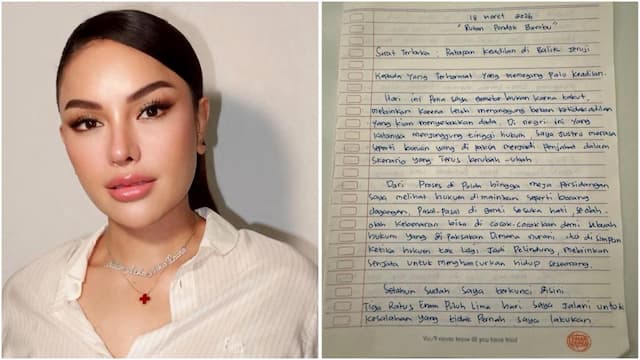 18 Maret 2026
"Rutan Pondok Bambu"
Surat Terbuka : Ratapan Keadilan di Balik Jeruji
Kepada Yang Terhormat Yang memegang Palu Keadilan.
Hari ini Pena saya gemetar bukan karna takut,
melainkan karna lelah menanggung beban ketidakadilan
yang kian menyesakkan dada. Di negri ini Yang
katanya menjunjung tinggi hukum, saya justru merasa
seperti buruan yang di paksa menjadi Penjahat dalam
skenario yang Terus berubah-ubah
Dari Proses di Polda hingga meja Persidangan
saya melihat hukum di mainkan seperti barang
dagangan, Pasal-Pasal di ganti sesuka hati, seolah
olah kebenaran bisa di cocok-cocokkan demi sebuah
hukum yang di Paksakan Dimana nurani itu di simpan
ketika hukum tak lagi Jadi Pelindung, melainkan
senjata untuk menghancurkan hidup seseorang.
Setahun sudah saya terkunci disini.
Tiga Ratus Enam Puluh Lima hari saya Jalani untuk
kesalahan yang tidak Pernah saya lakukan.
You'll never know till you have tried